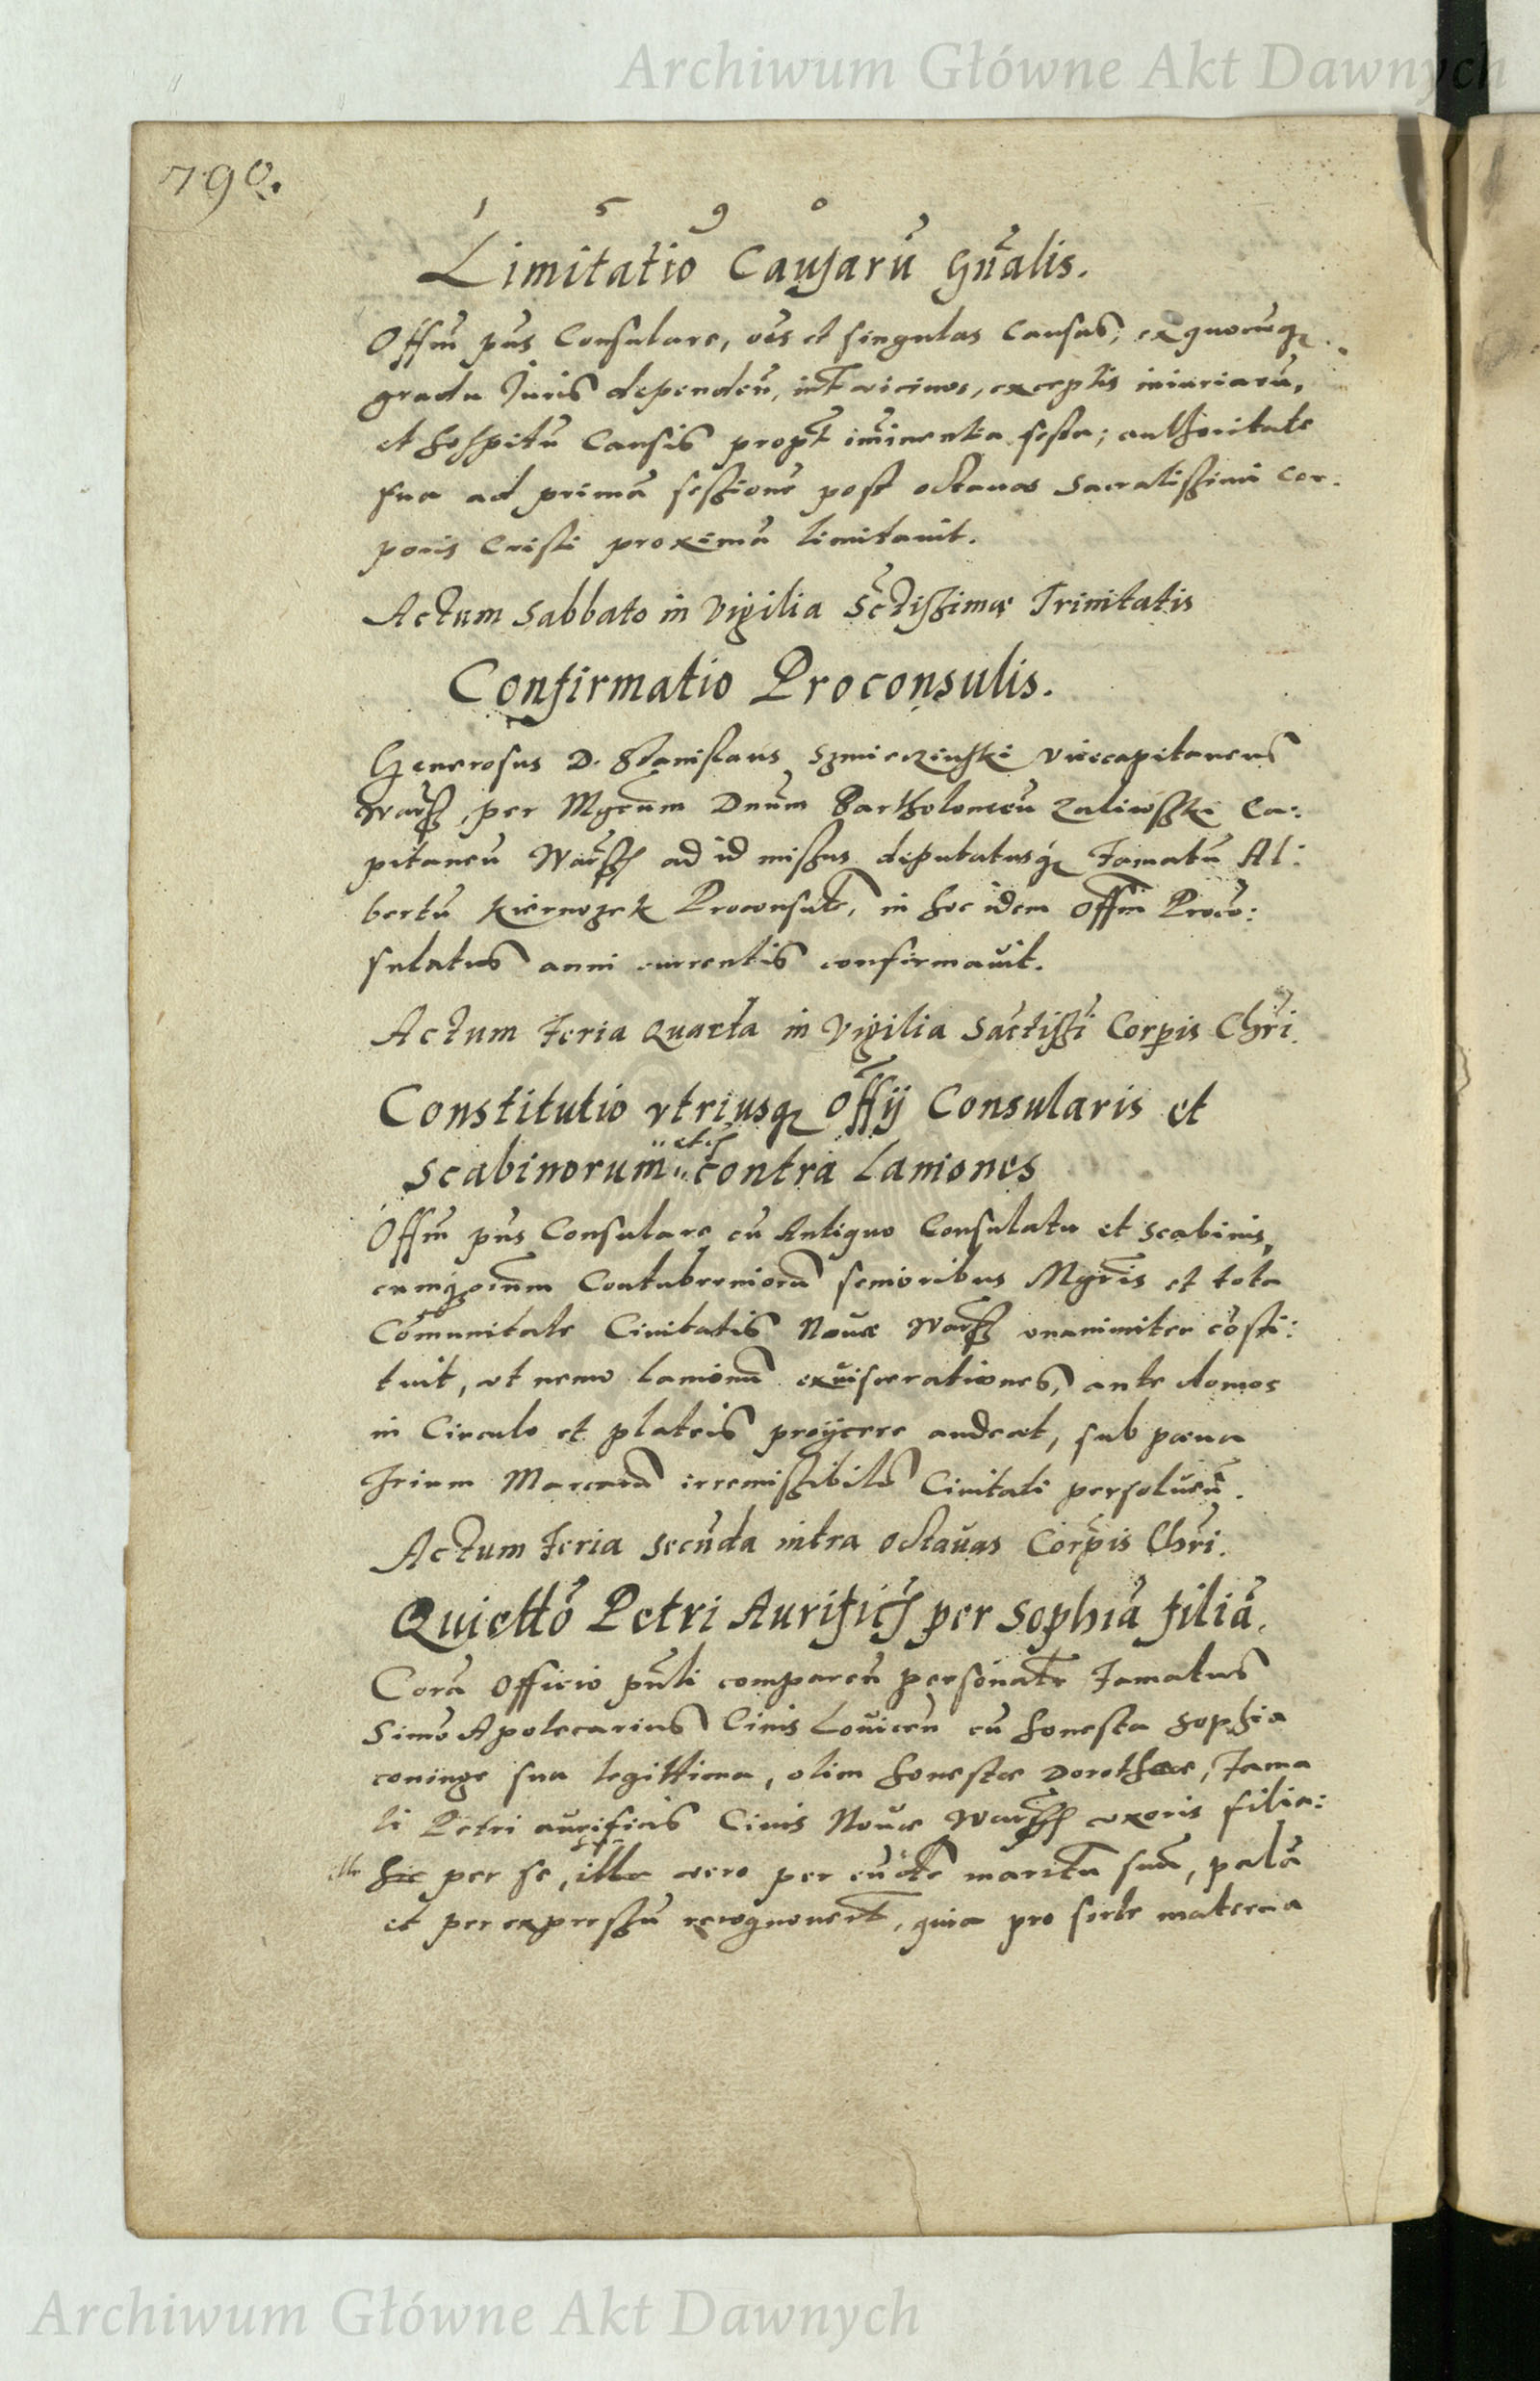 Archiwum Główne Akt Dawnych
790.
1 5 9 0
Limitatio Causarũ Gñalis.
Offm̃ pñs Consulare, oẽs et singulas Causas, ex quocũqꝫ
gradu Juris dependeñ, int̃ vicinos, exceptis iniuriarũ,
et hospitũ Causis propt̃ im̃inentia festa; authoritate
sua ad primã sessionẽ post octauas Sacratissimi Cor:
poris Cristi proximã limitauit.
Actum Sabbato in Vigilia Sc̃tissimæ Trinitatis
Confirmatio Proconsulis.
Generosus D. Stanislaus Szmierzinski Vicecapitaneus
Warss̃, per Mgcũm Dnũm Bartholomeũ Zaliwski Ca:
pitaneũ Warss̃ ad id missus deputatusqꝫ Famatũ Al:
bertũ Kiernozek Proconsulẽ, in hoc idem Offm̃ Procõ:
sulatus anni currentis confirmauit.
Actum Feria Quarta in Vigilia Sãctissĩ Corpis Chr̃i.
Constitutio vtriusqꝫ Off̃ij Consularis et
etc
Scabinorum contra Laniones
Offm̃ pñs Consulare cũ Antiquo Consulatu et Scabinis,
cumqꝫ oium̃ Contuberniorũ senioribus Mgrĩs et tota
Cõmunitate Ciuitatis Nouæ Warss̃ vnanimiter cõsti:
tuit, vt nemo lanionũ exuiscerationes, ante domos
in Circulo et plateis proijcere audeat, sub pœna
Trium Marcarũ irremissibilr̃ Ciuitati persoluen̄.
Actum Feria Secũda intra Octauas Corp̃is Chr̃i.
Quiettõ Petri Aurificis per Sophiã filiã.
Corã Officio pñti compareñ personalr̃ Famatus
Simõ Apotecarius Ciuis Louiceñ cũ honesta Sophia
coniuge sua legittima, olim honestæ Dorotheæ, Fama
ti Petri aurificis Ciuis Nouæ Warss̃ vxoris filia:
ille hic per se, illa vero per eũdẽ maritũ suũ, palã
et per expressũ recognouerũt, quia pro sorte materna
Archiwum Główne Akt Dawnych